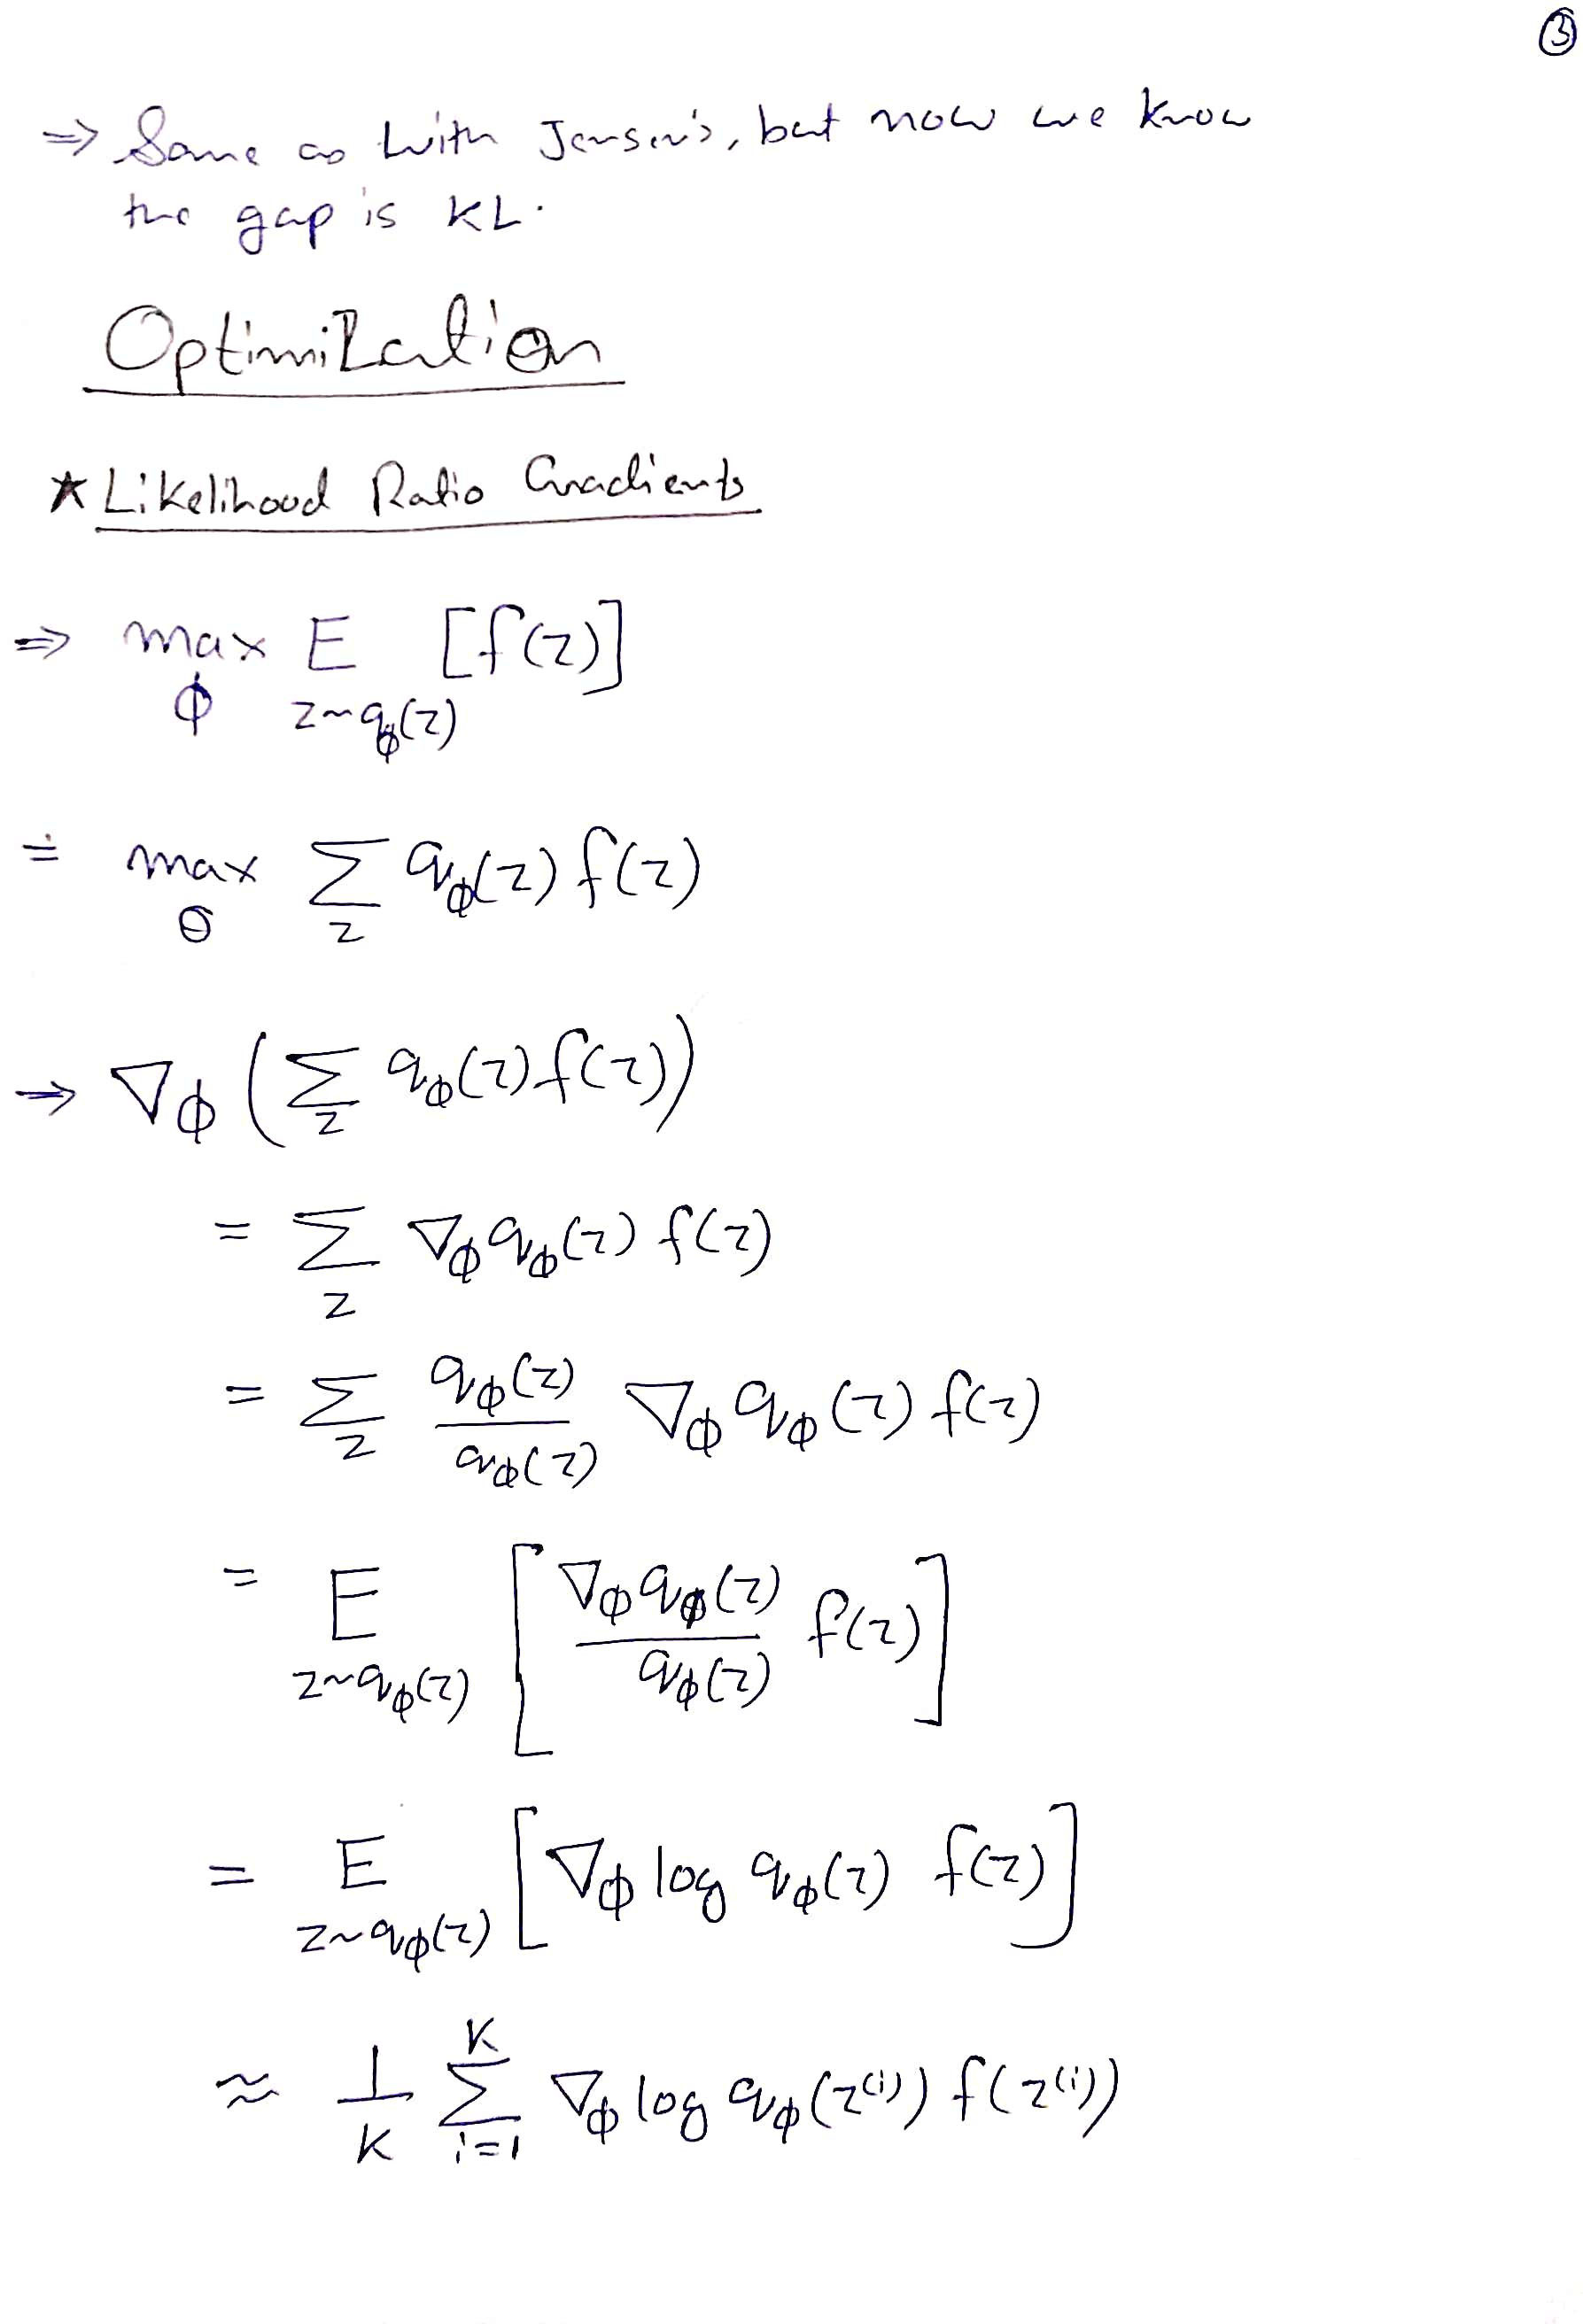 ③
⇒ Same as with Jensen's, but now we know
the gap is KL.
Optimization
* Likelihood Ratio Gradients
⇒ max_ϕ E_{z~q_ϕ(z)} [f(z)]
= max_θ Σ_z q_ϕ(z) f(z)
→ ∇_ϕ (Σ_z q_ϕ(z) f(z))
= Σ_z ∇_ϕ q_ϕ(z) f(z)
= Σ_z q_ϕ(z)/q_ϕ(z) ∇_ϕ q_ϕ(z) f(z)
= E_{z~q_ϕ(z)} [∇_ϕ q_ϕ(z)/q_ϕ(z) f(z)]
= E_{z~q_ϕ(z)} [∇_ϕ log q_ϕ(z) f(z)]
≈ 1/K Σ_{i=1}^{K} ∇_ϕ log q_ϕ(z^{(i)}) f(z^{(i)})